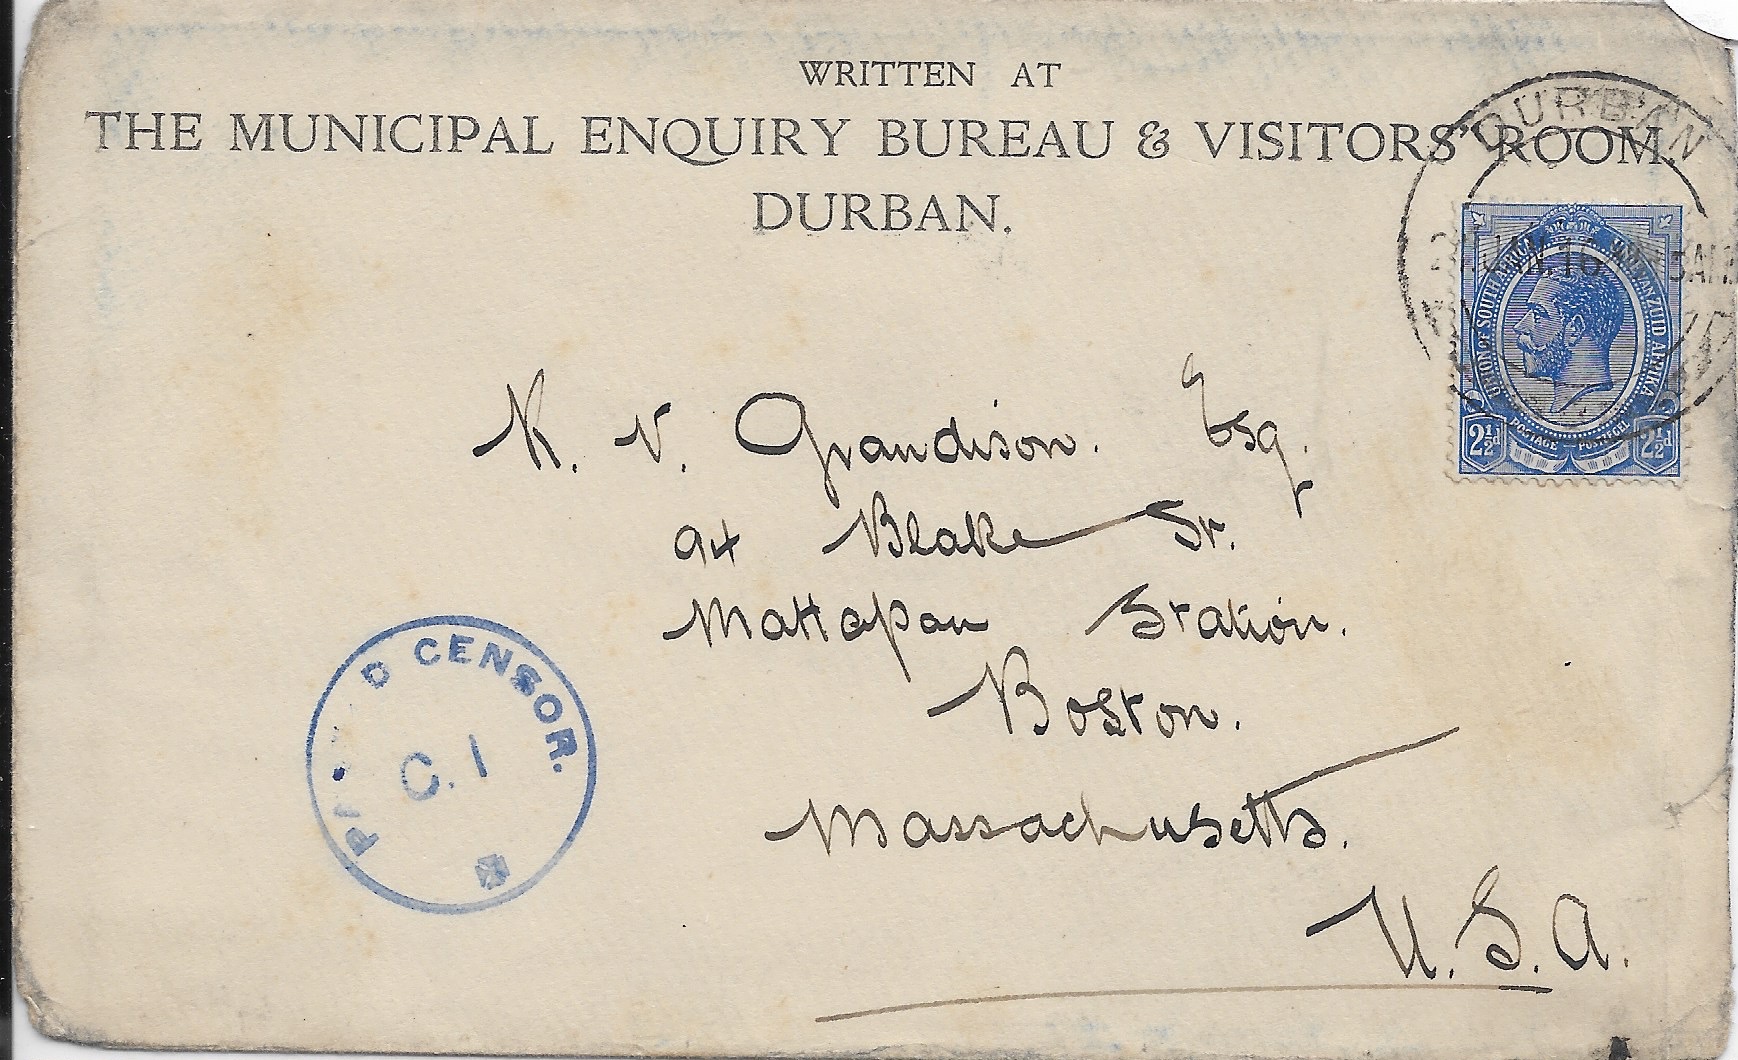 WRITTEN AT
THE MUNICIPAL ENQUIRY BUREAU & VISITORS' ROOM.
DURBAN.
DURBAN
UNION OF SOUTH AFRICA
UNIE VAN ZUID AFRIKA
2½d POSTAGE POSTZEGEL 2½d
K. V. Grandison. Esq.
94 Blake St.
Mattapan Station.
Boston.
Massachusetts.
U.S.A.
CENSOR.
C. 1